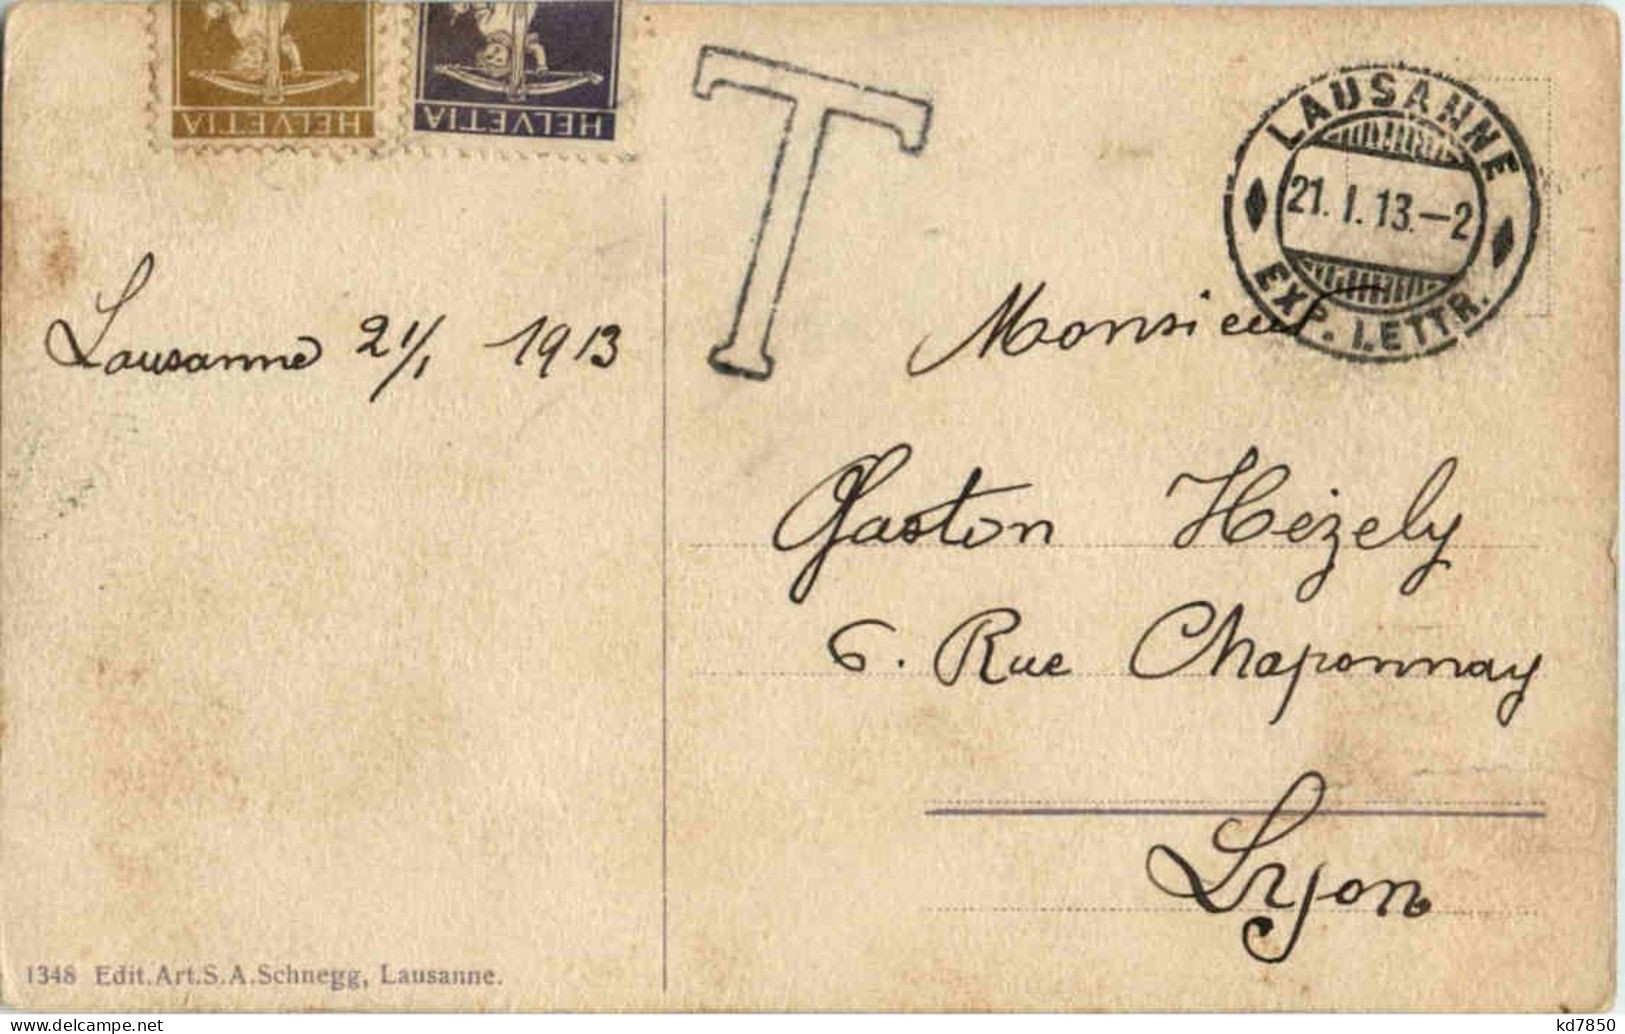 HELVETIA HELVETIA
T
LAUSANNE
21. I. 13.-2
EXP. LETTR.
Lausanne 21/1 1913
Monsieur
Gaston Hézely
6. Rue Chaponnay
Lyon
1348 Edit.Art.S.A.Schnegg, Lausanne.
kd7850